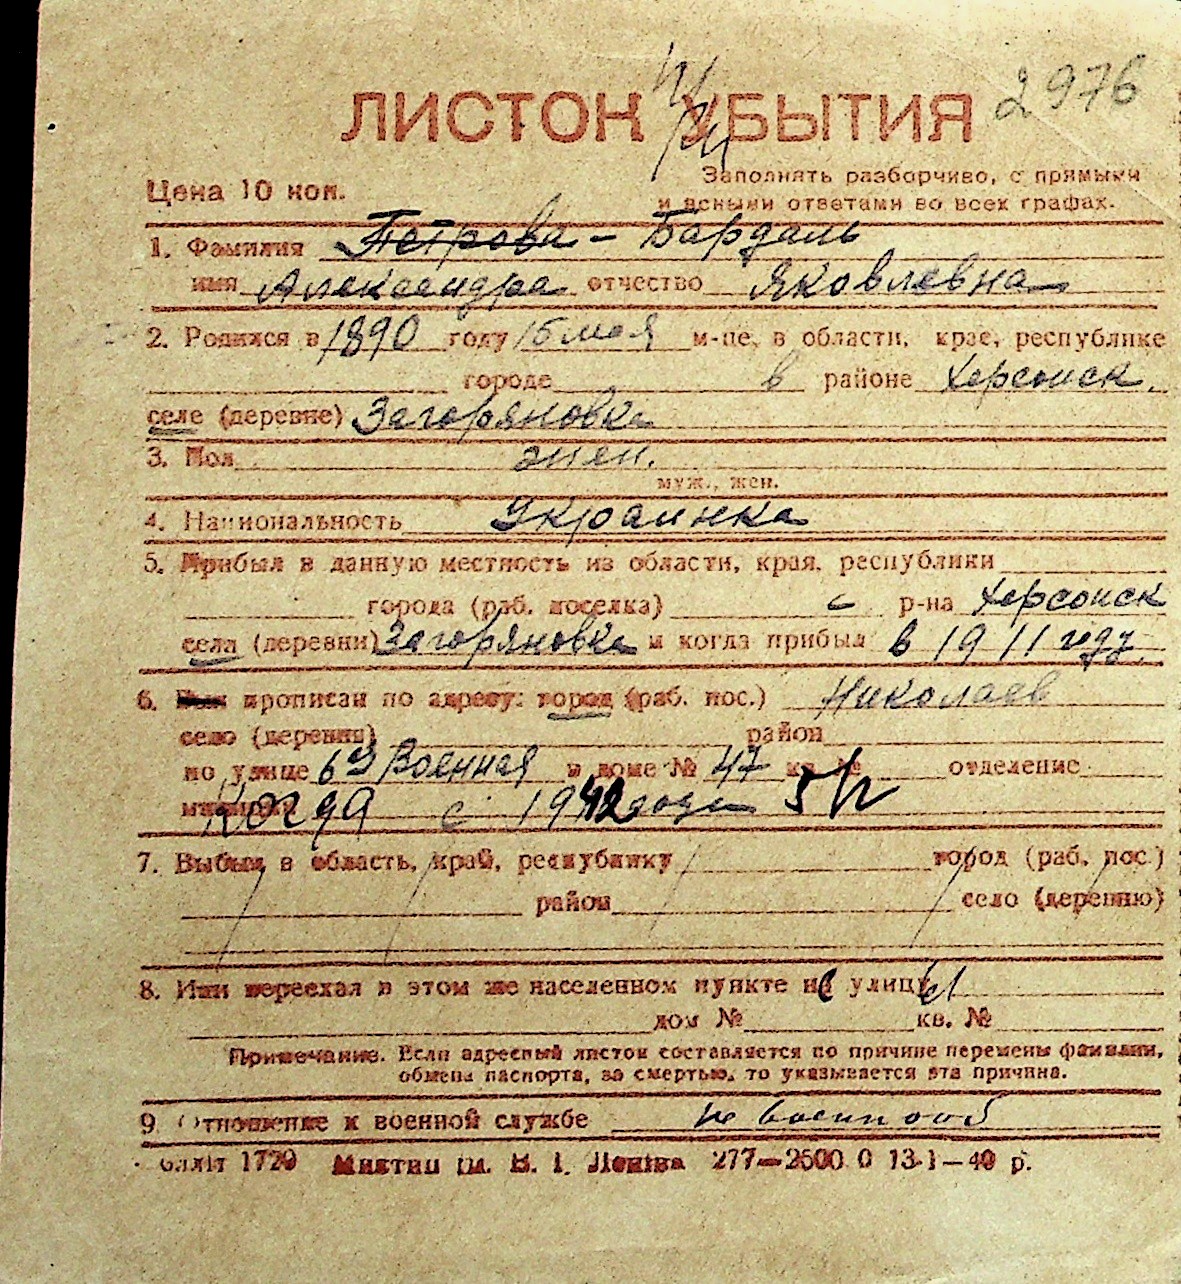 2976
ЛИСТОК УБЫТИЯ
Цена 10 коп.
Заполнять разборчиво, с прямыми
и ясными ответами во всех графах.
1. Фамилия Петрова - Бардаль
имя Александра отчество Яковлевна
2. Родился в 1890 году 15 мая м-це, в области, крае, республике
городе в районе Херсонск.
селе (деревне) Загоряновка
3. Пол жен.
муж., жен.
4. Национальность Украинка
5. Прибыл в данную местность из области, края, республики
города (раб. поселка) с р-на Херсонск
села (деревни) Загоряновка и когда прибыл в 1911 году.
6. прописан по адресу: город (раб. пос.) Николаев
село (деревня) район
по улице 6я Военная в доме № 47 кв. № отделение
Когда с 1942 года
7. Выбыл в область, край, республику город (раб. пос.)
район село (деревню)
8. Или переехал в этом же населенном пункте на улицу
дом № кв. №
Примечание. Если адресный листок составляется по причине перемены фамилии,
обмена паспорта, за смертью, то указывается эта причина.
9 Отношение к военной службе не военнооб
1720 им. В. І. Леніна 277—2500 0 13-1—40 р.